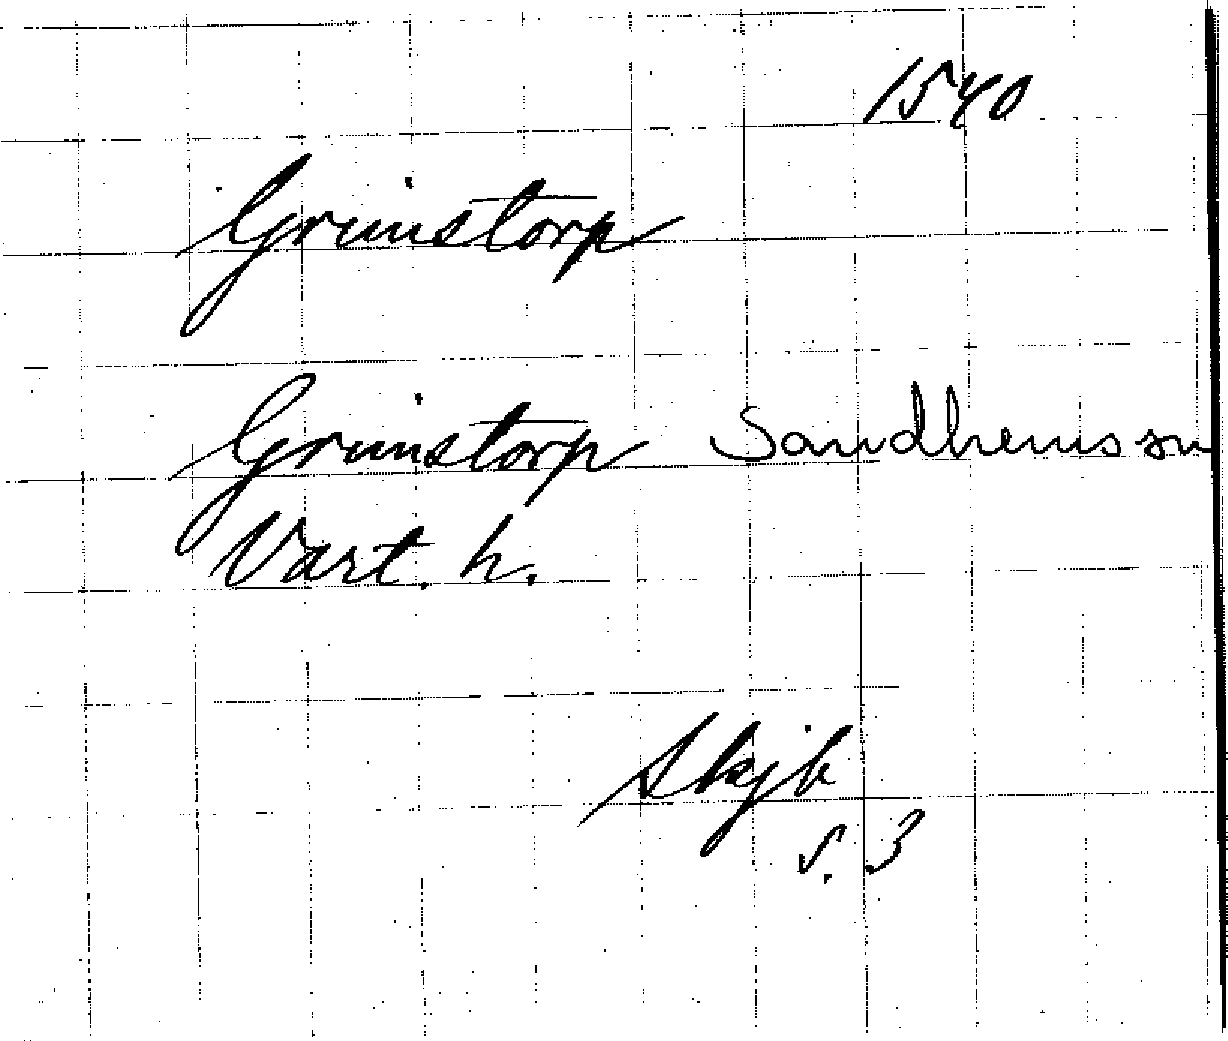 1540
Grimstorp
Grimstorp Sandhems sn
Vart. h.
Skjb
s. 3